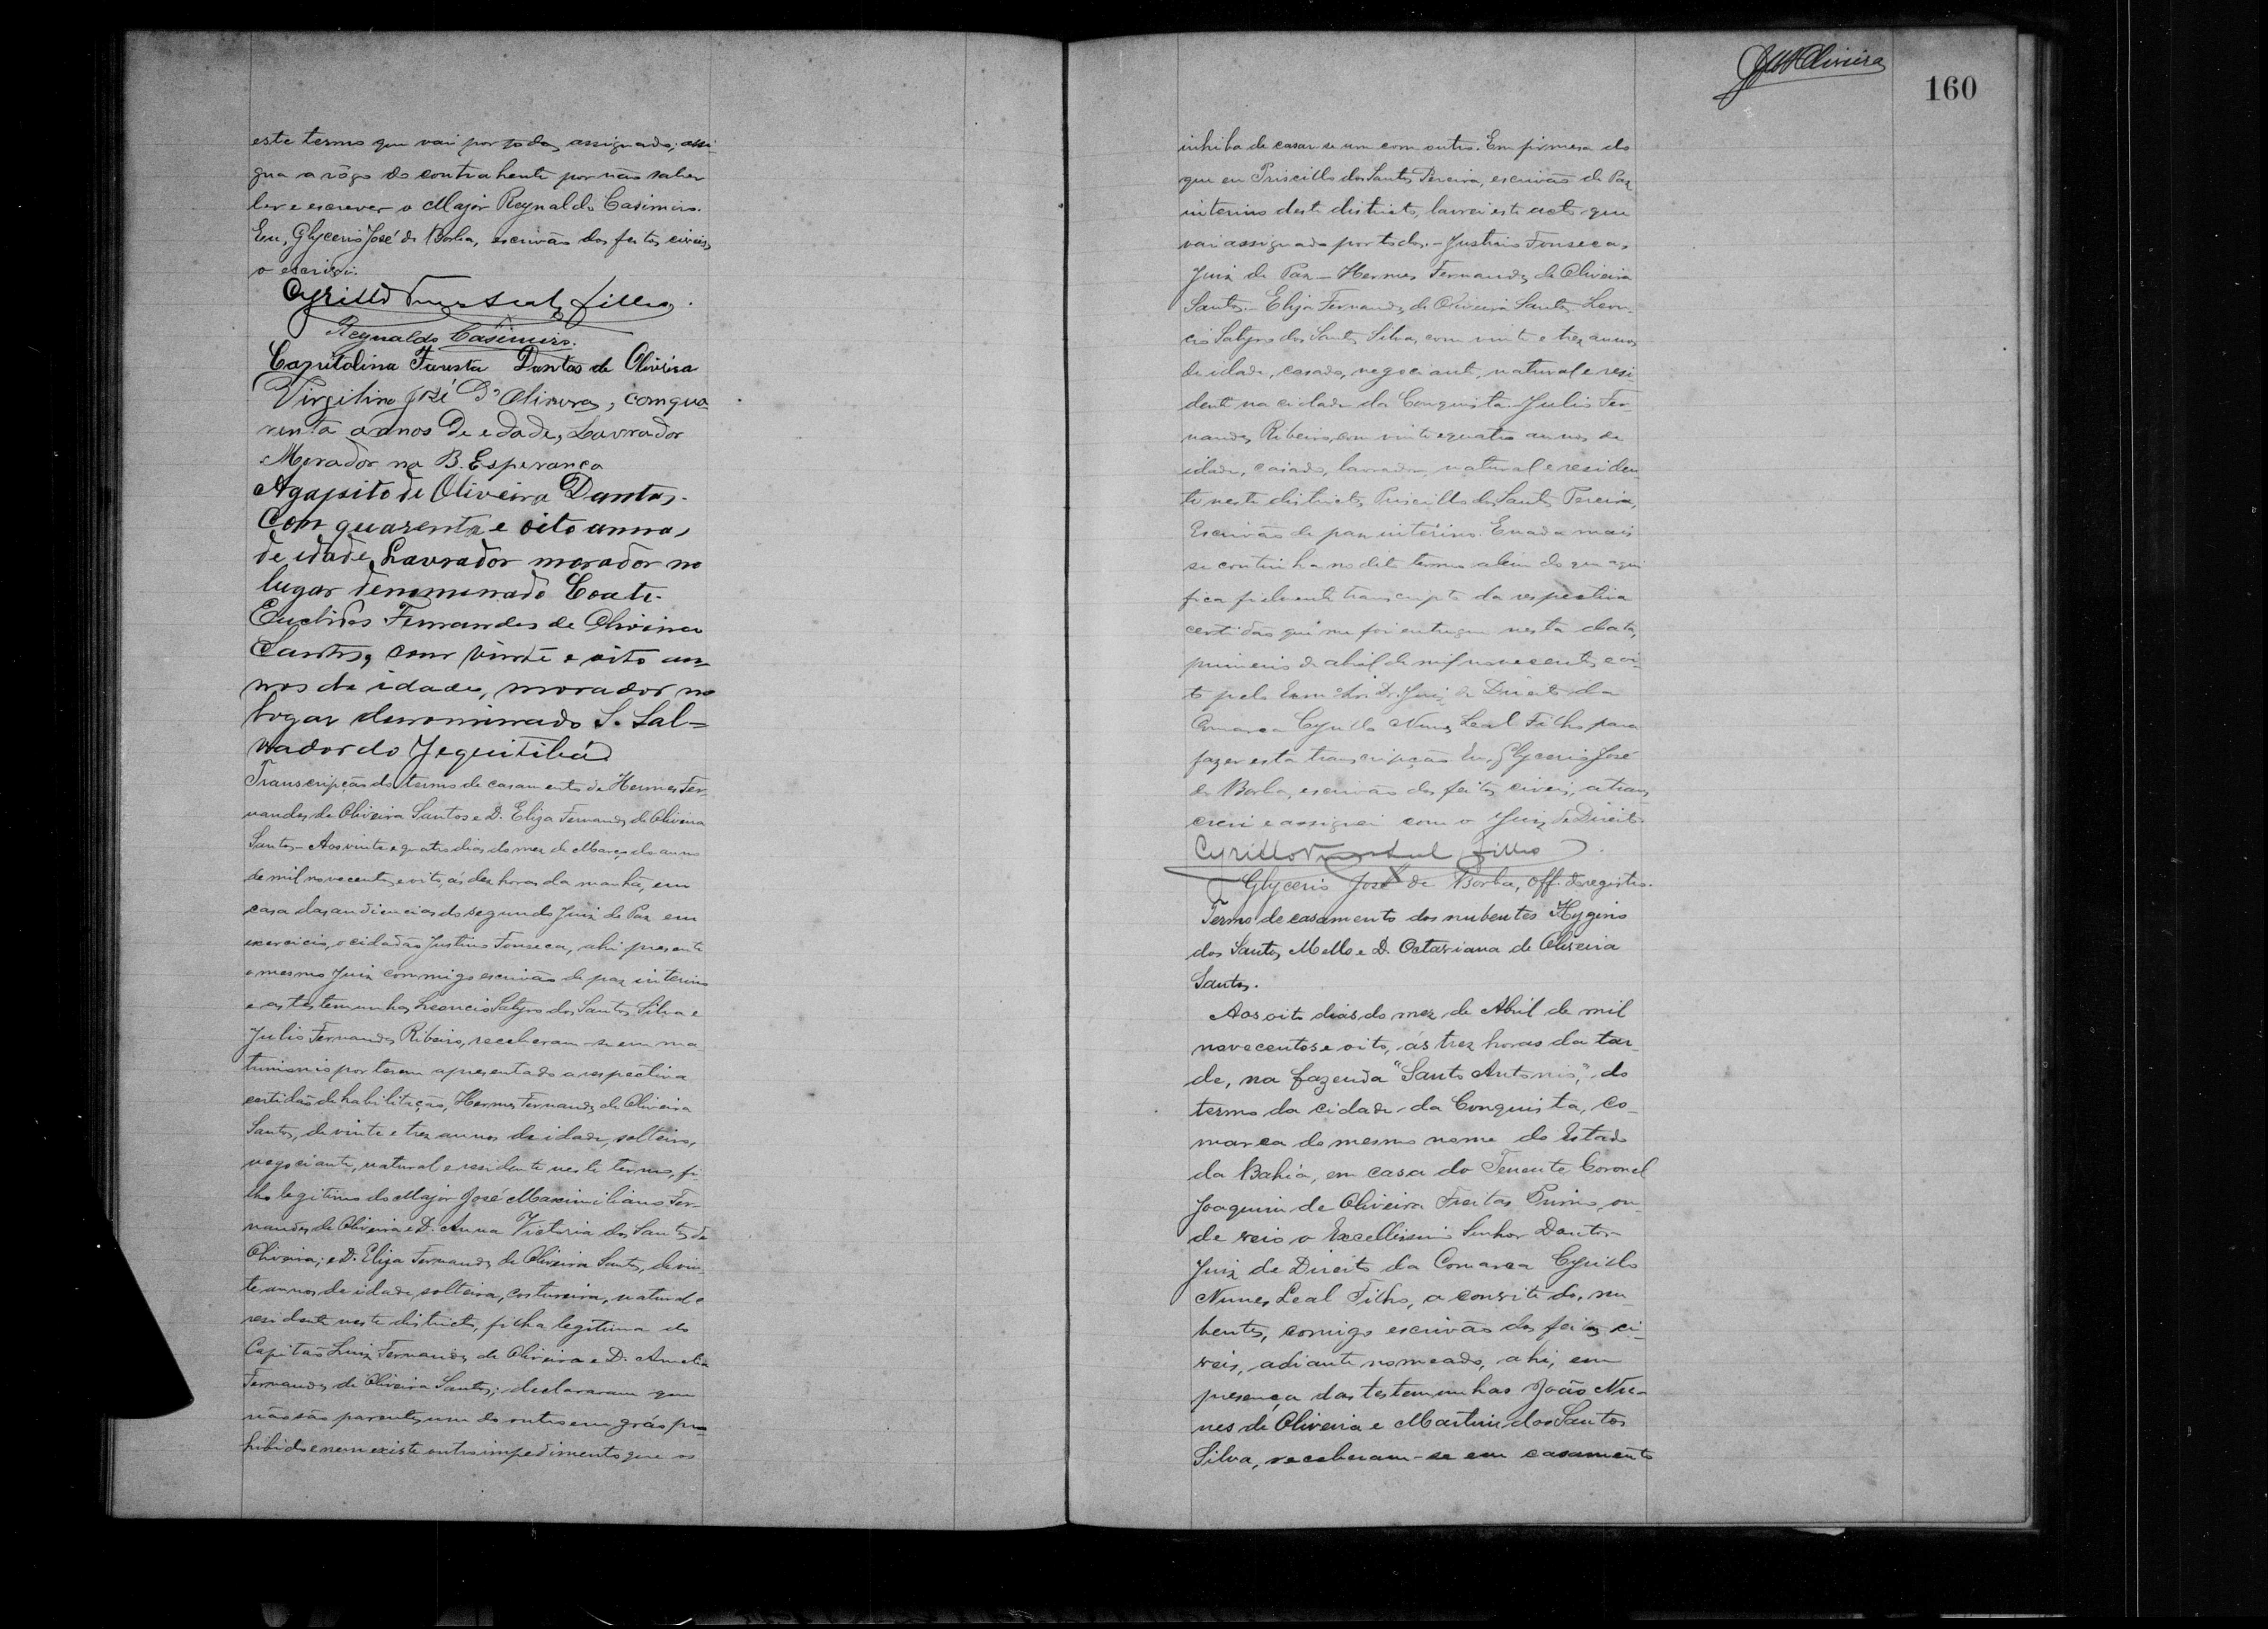 este termo que vai por todos assignado; assi-
gna a rôgo do contrahente por não saber
ler e escrever o Major Reynaldo Casimiro.
Eu, Glycerio José de Borba, escrivão dos feitos civeis,
o escrivi.
Cyrillo Nunes Leal Filho.
Reynaldo Casimiro.
Capitolina Fausta Dantas de Oliveira
Virgilino José d'Oliveira, com qua-
renta annos de edade, Lavrador
Morador na B. Esperança
Agapito de Oliveira Dantas.
Com quarenta e oito annos
de idade, Lavrador morador no
lugar denominado Coate.
Euclides Fernandes de Oliveira
Santos, com vinte e oito an-
nos de idade, morador no
logar denominado S. Sal-
vador do Jequitibá
Transcripção do termo de casamento de Hermes Fer-
nandes de Oliveira Santos e D. Eliza Fernandes de Oliveira
Santos - Aos vinte e quatro dias do mez de Março do anno
de mil novecentos e oito, ás dez horas da manhã, em
casa das audiencias do segundo Juiz de Paz em
exercicio, o cidadão Justino Fonseca, ahi presente
o mesmo Juiz commigo escrivão de paz interino
e as testemunhas Leoncio Satyro dos Santos Silva e
Julio Fernandes Ribeiro, receberam-se em ma
trimonio por terem apresentado a respectiva
certidão de habilitação, Hermes Fernandes de Oliveira
Santos, de vinte e trez annos de idade, solteiro,
negociante, natural e residente neste termo, fi
lho legitimo do Major José Maximiliano Fer-
nandes de Oliveira e D. Anna Victoria dos Santos de
Oliveira; e D. Eliza Fernandes de Oliveira Santos, de vin
te annos de idade, solteira, costureira, natural e
residente neste districto, filha legitima do
Capitão Luiz Fernandes de Oliveira e D. Amelia
Fernandes de Oliveira Santos; declararam que
não são parentes um do outro em gráo pro
hibido e nem existe outro impedimento que os
160
inhiba de casar-se um com outro. Em firmesa do
que eu Priscillo dos Santos Pereira, escrivão de Paz
interino deste districto, lavrei este acto que
vai assignado por todos. - Justino Fonseca,
Juiz de Paz - Hermes Fernandes de Oliveira
Santos - Eliza Fernandes de Oliveira Santos - Leon-
cio Satyro dos Santos Silva, com vinte e trez annos
de idade, casado, negociante, natural e resi-
dente na cidade da Conquista. Julio Fer-
nandes Ribeiro, com vinte e quatro annos de
idade, casado, lavrador, natural e residen-
te neste districto, Priscillo dos Santos Pereira,
Escrivão de paz interino. E nada mais
se continha no dito termo alem do que aqui
fica fielmente transcripto da respectiva
certidão que me foi entregue nesta data,
primeiro de abril de mil novecentos e oi-
to pelo Exmo Snr. Dr. Juiz de Direito da
Comarca Cyrillo Nunes Leal Filho para
fazer esta transcripção. Eu, Glycerio José
de Borba, escrivão dos feitos civeis, a trans
crevi e assignei com o Juiz de Direito.
Cyrillo Nunes Leal Filho.
Glycerio José de Borba, off. do registro.
Termo de casamento dos nubentes Hygino
dos Santos Mello e D. Octaviana de Oliveira
Santos.
Aos oito dias do mez de Abril de mil
novecentos e oito, ás trez horas da tar-
de, na fazenda "Santo Antonio," do
termo da cidade da Conquista, co-
marca do mesmo nome do Estado
da Bahia, em casa do Tenente Coronel
Joaquim de Oliveira Freitas Primo, on-
de veio o Excellissimo Senhor Doutor
Juiz de Direito da Comarca Cyrillo
Nunes Leal Filho, a convite dos nu-
bentes, comigo escrivão dos feitos ci-
veis, adiante nomeado, ahi, em
presença das testemunhas João Nu-
nes de Oliveira e Martinis dos Santos
Silva, receberam-se em casamento